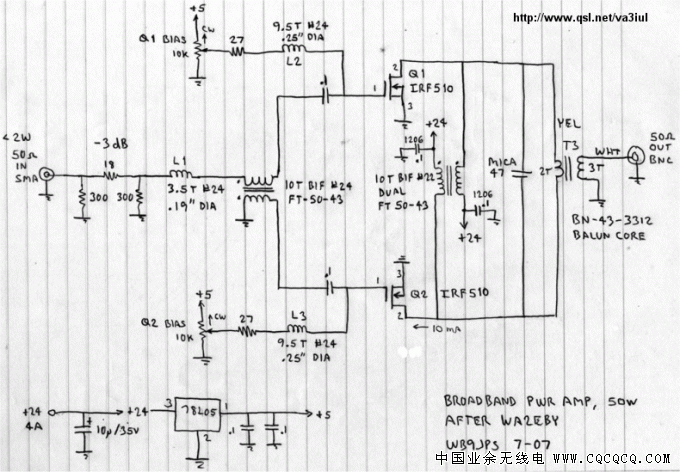 http://www.qsl.net/va3iul
+5
Q1 BIAS
10K
CW
27
9.5T #24
.25" DIA
L2
.1
1
2
Q1
IRF510
3
<2W
50Ω
IN
SMA
-3dB
18
300
300
L1
3.5T #24
.19" DIA
10T BIF #24
FT-50-43
+24
1206
.1
10T BIF #22
DUAL
FT50-43
1206
.1
+24
MICA
47
YEL
T3
2T
3T
WHT
50Ω
OUT
BNC
BN-43-3312
BALUN CORE
+5
Q2 BIAS
10K
CW
27
L3
9.5T #24
.25" DIA
.1
1
3
Q2
IRF510
2
10 mA
+24
4A
10µ/35V
+24
3
78L05
1
2
.1
.1
+5
BROADBAND PWR AMP, 50W
AFTER WA2EBY
WB9JPS 7-07
中国业余无线电 www.CQCQCQ.com